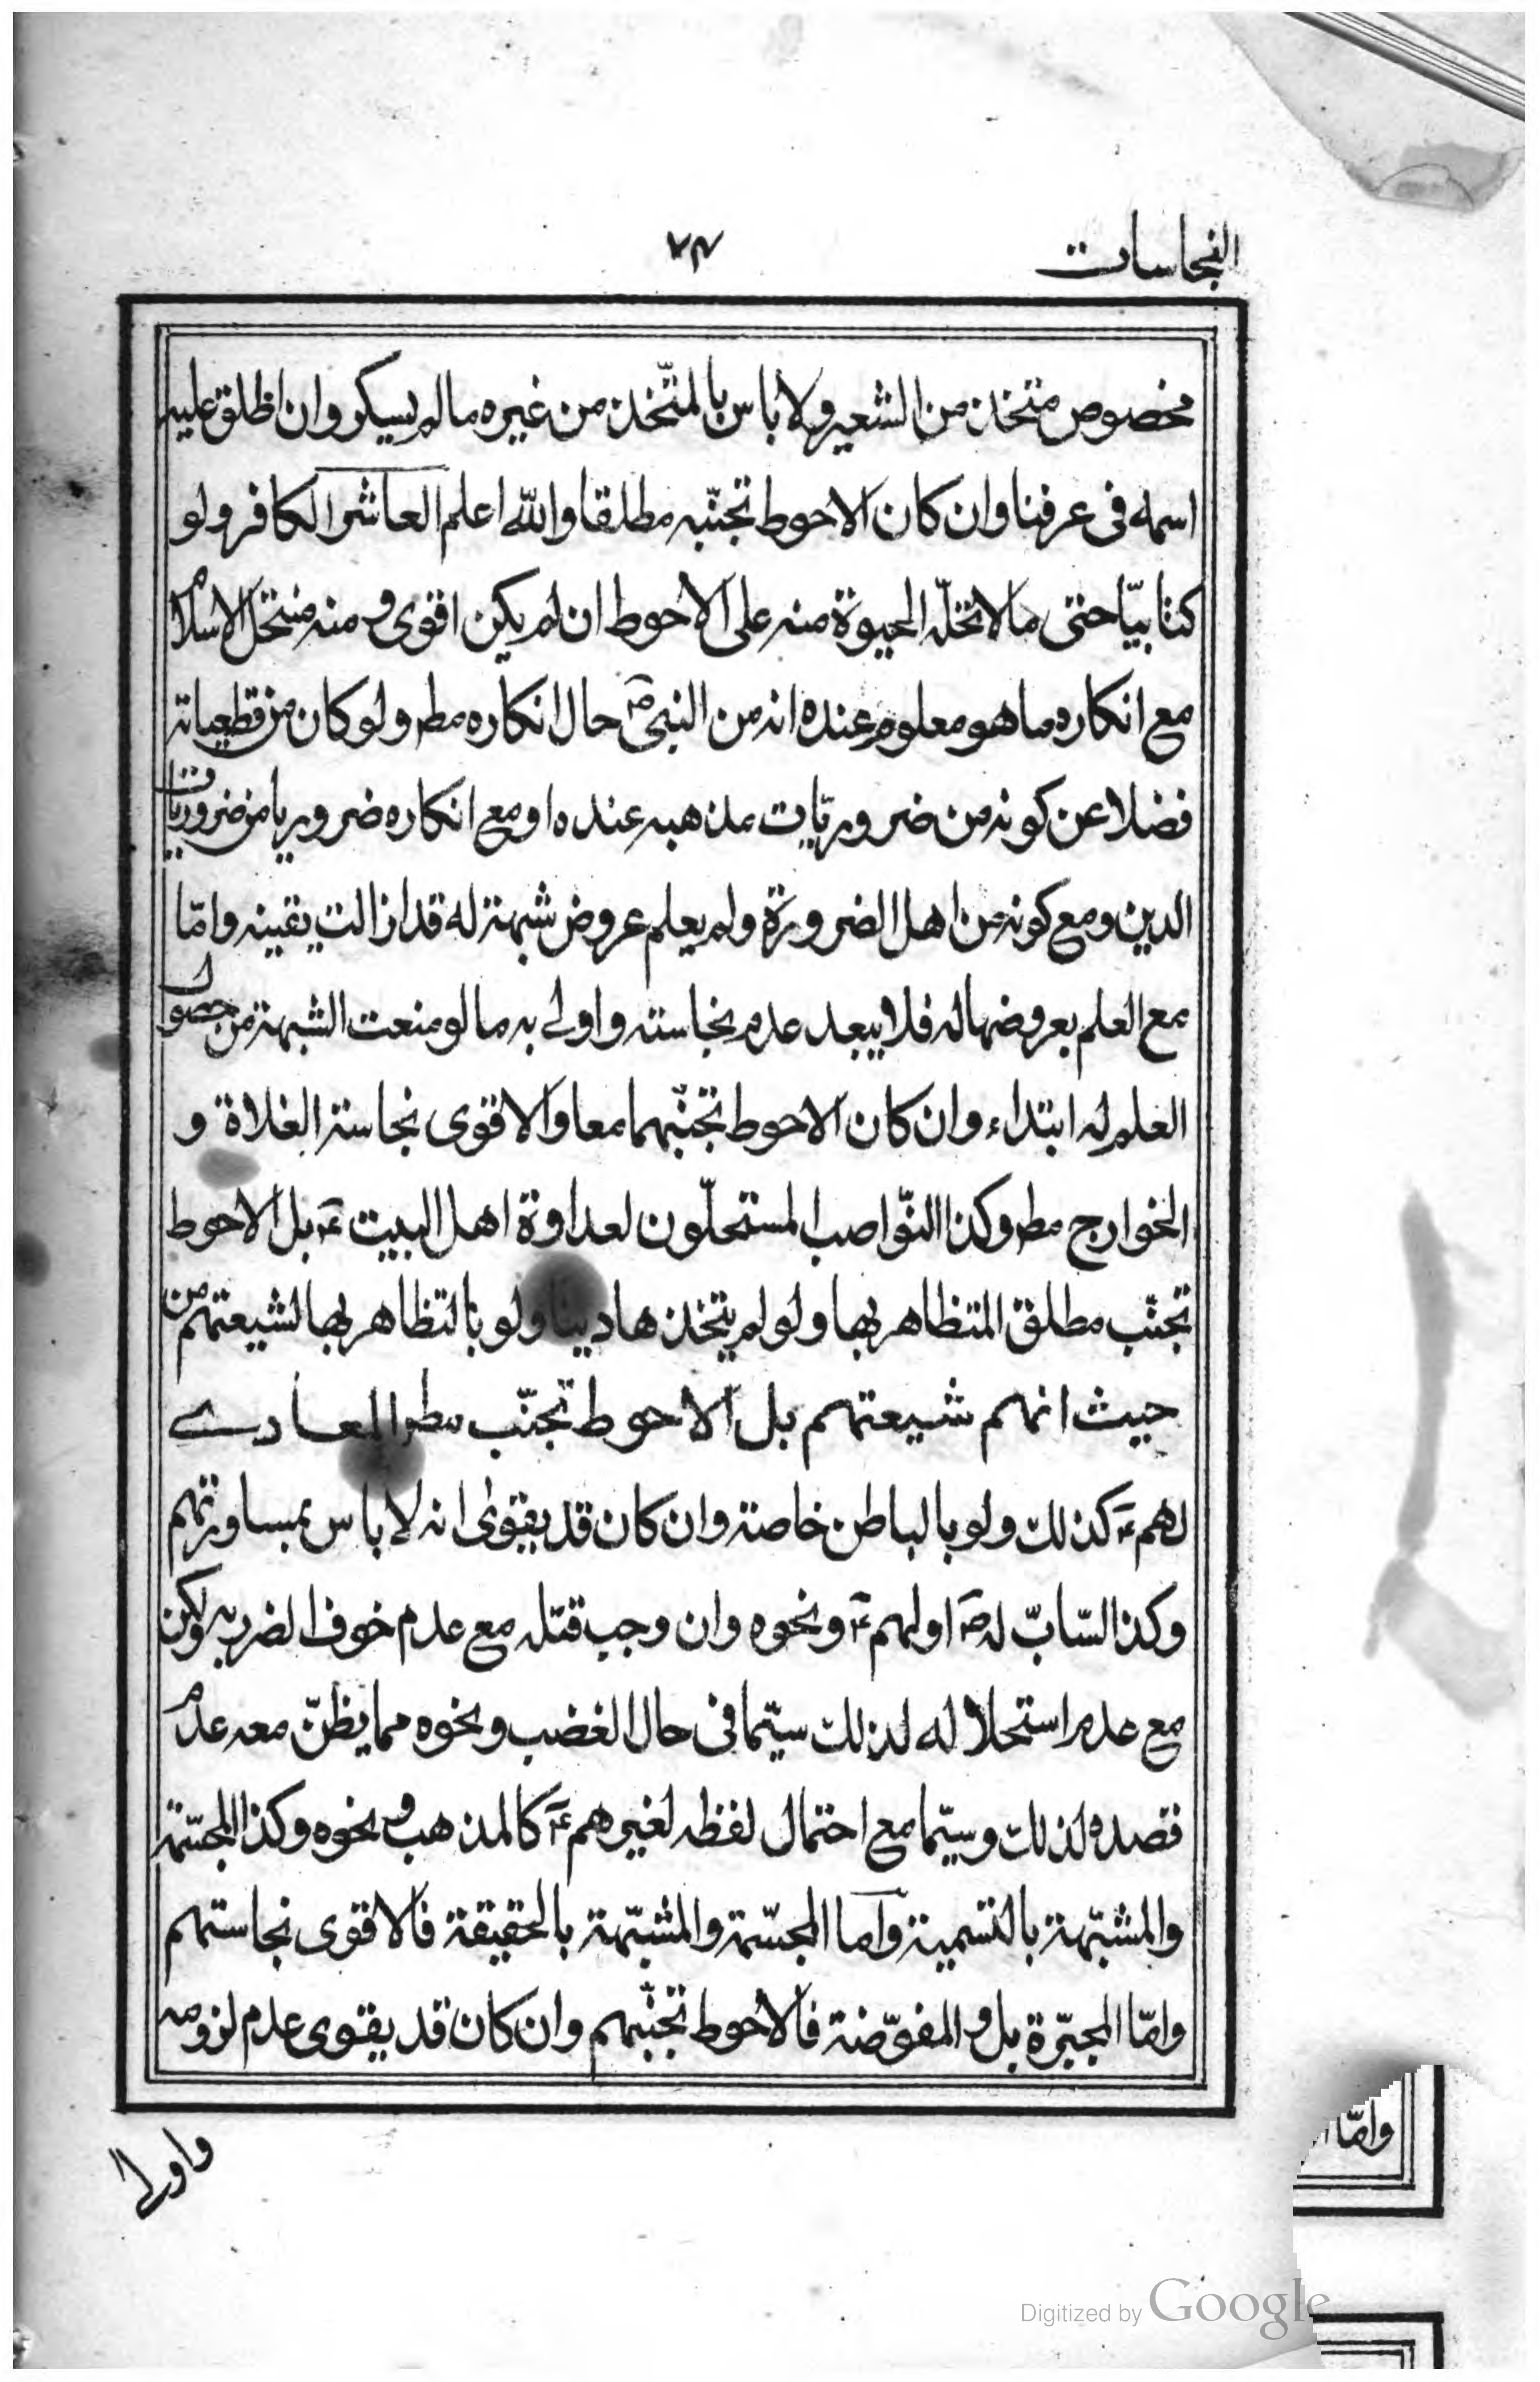 النجاسات
٧٣
مخصوص متخذ من الشعير ولا باس بالمتّخذ من غيره ما لم يسكر وان اطلق عليه
اسمه فى عرفنا وان كان الاحوط تجنّبه مطلقا والله اعلم العاشر الكافر ولو
كتابيّا حتى ما لا تحلّه الحيوة منه على الاحوط ان لم يكن اقوى ومنه منتحل الاسلام
مع انكاره ما هو معلوم عنده انه من النبى ص حال انكاره مط ولو كان من قطعياته
فضلا عن كونه من ضروريّات مذهبه عنده او مع انكاره ضروريا من ضروريات
الدين ومع كونه من اهل الضرورة ولم يعلم عروض شبهة له قد ازالت يقينه وامّا
مع العلم بعروضها له فلا يبعد عدم نجاسته واولى به ما لو منعت الشبهة من حصول
العلم له ابتداء وان كان الاحوط تجنّبهما معا والاقوى نجاسة الغلاة و
الخوارج مط وكذا النّواصب المستحلّون لعداوة اهل البيت ع بل الاحوط
تجنّب مطلق المتظاهر بها ولو لم يتخذها دينا ولو بالتظاهر بها لشيعتهم من
حيث انهم شيعتهم بل الاحوط تجنّب مط المعادى
لهم ع كذلك ولو بالباطن خاصة وان كان قد يقوى انه لا باس بمساورتهم
وكذا السّابّ له ص او لهم ع ونحوه وان وجب قتله مع عدم خوف الضرر به ولكن
مع عدم استحلاله لذلك سيّما فى حال الغضب ونحوه مما يظنّ معه عدم
قصده لذلك وسيّما مع احتمال لفظه لغيرهم ع كالمذهب ونحوه وكذا المجسّمة
والمشبّهة بالتسمية وامّا المجسّمة والمشبّهة بالحقيقة فالاقوى نجاستهم
وامّا المجبّرة بل والمفوّضة فالاحوط تجنّبهم وان كان قد يقوى عدم لزومه
واولى
وامّا
Digitized by Google